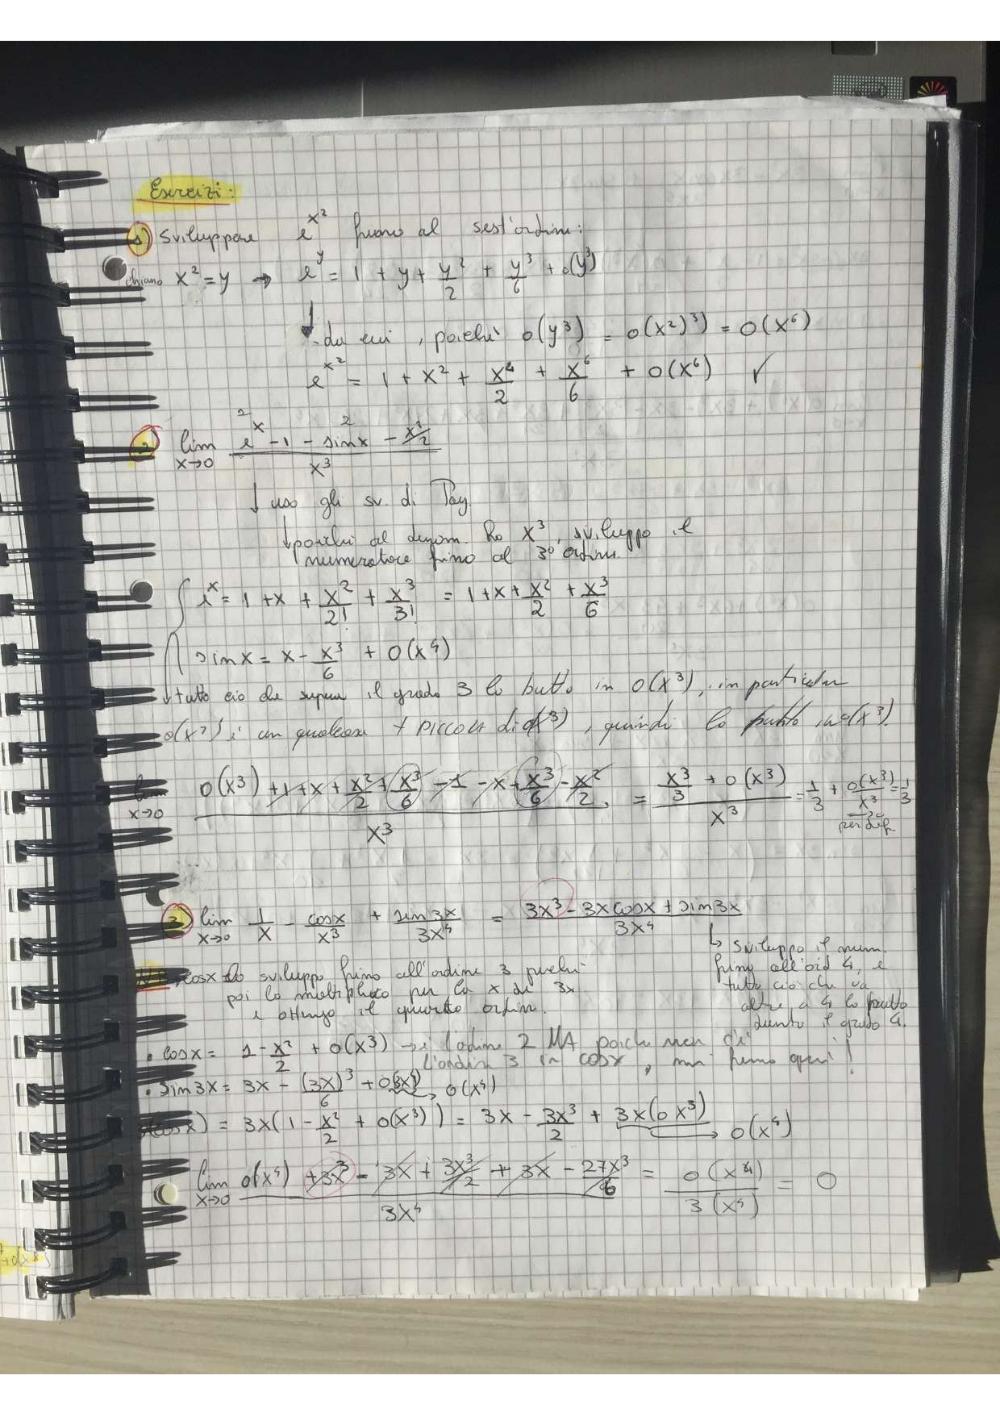 Esercizi:
1) Sviluppare e^x² fino al sest'ordine:
chiamo x² = y → e^y = 1 + y + y²/2 + y³/6 + o(y³)
↓ da cui, poiché o(y³) = o(x²)³) = o(x⁶)
e^x² = 1 + x² + x⁴/2 + x⁶/6 + o(x⁶) ✓
2) lim x→0 (e^x - 1 - sin x - x²/2) / x³
↓ uso gli sv. di Tay
↓ poiché al denom. ho x³, sviluppo il
numeratore fino al 3° ordine.
e^x = 1 + x + x²/2! + x³/3! = 1 + x + x²/2 + x³/6
sin x = x - x³/6 + o(x⁴)
↓ tutto ciò che supera il grado 3 lo butto in o(x³), in particolare
è un qualcosa + piccolo di o(x³), quindi lo butto in o(x³).
lim x→0 (o(x³) + 1 + x + x²/2 + x³/6 - 1 - x + x³/6 - x²/2) / x³ = (x³/3 + o(x³)) / x³ = 1/3 + o(x³)/x³ = 1/3
per def.
3) lim x→0 1/x - cos x/x³ + sin 3x/3x⁴ = (3x³ - 3x cos x + sin 3x) / 3x⁴
↳ sviluppo il num.
fino all'ord 4, e
tutto ciò che va
oltre a 4 lo butto
dentro il grado 4.
cos x lo sviluppo fino all'ordine 3 perché
poi lo moltiplico per la x di 3x
e ottengo il quarto ordine.
• cos x = 1 - x²/2 + o(x³) → è l'ordine 2 MA poiché non c'è
l'ordine 3 in cos x, mi fermo qui!
• sin 3x = 3x - (3x)³/6 + o(3x⁴) → o(x⁴)
cos x) = 3x(1 - x²/2 + o(x³)) = 3x - 3x³/2 + 3x(o x³) → o(x⁴)
lim x→0 (o(x⁴) + 3x³ - 3x + 3x³/2 + 3x - 27x³/6) / 3x⁴ = o(x⁴) / 3(x⁴) = 0